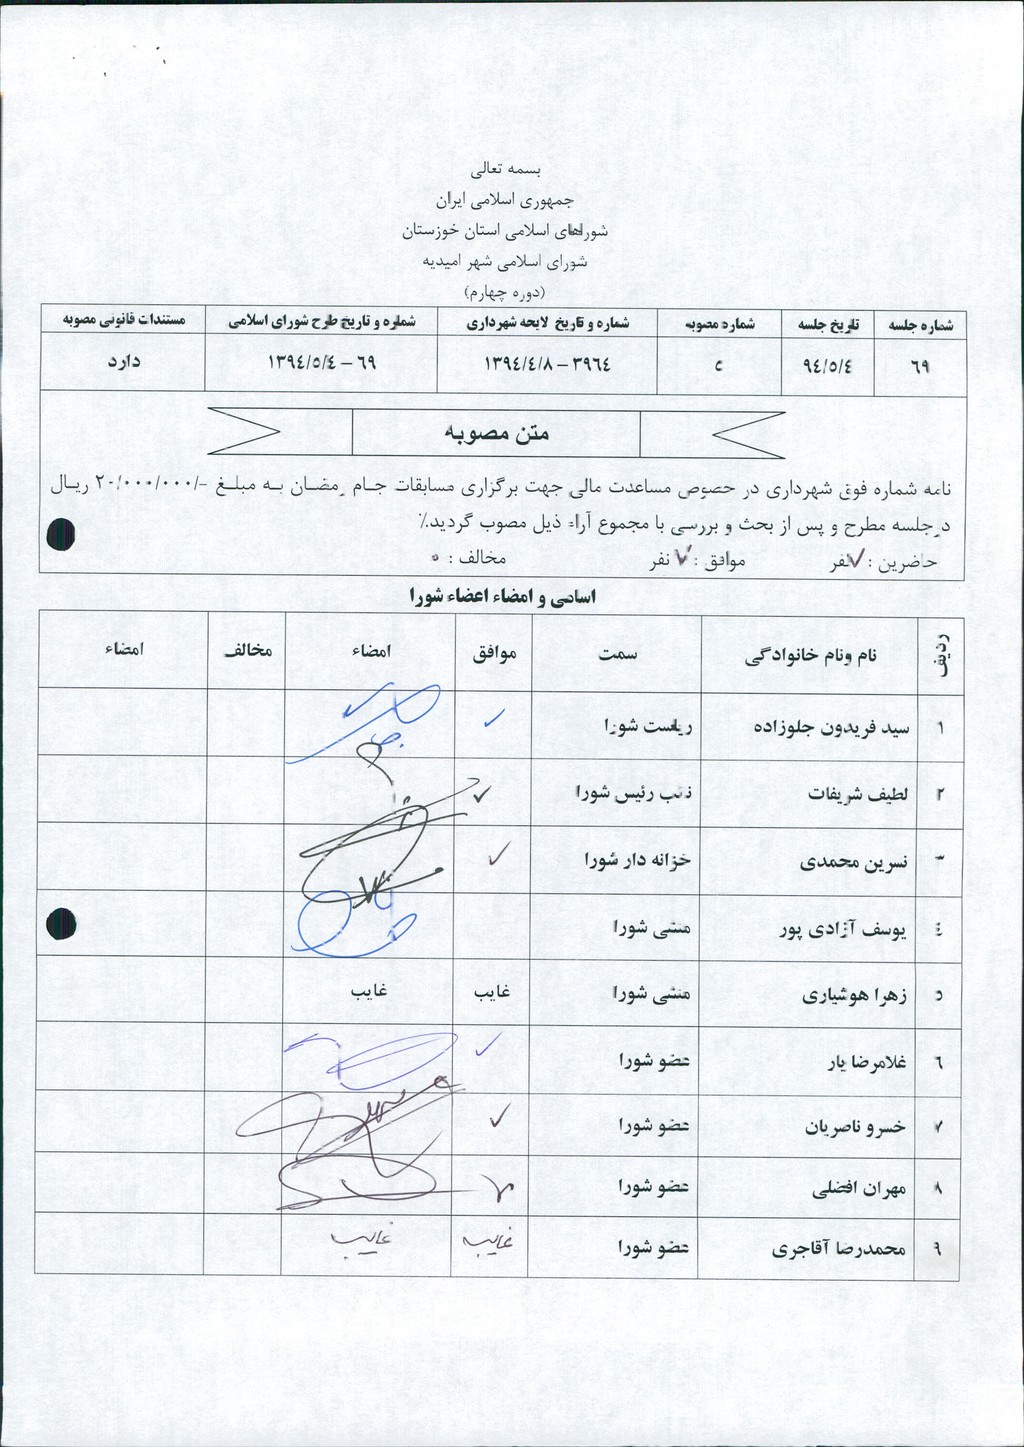 بسمه تعالی
جمهوری اسلامی ایران
شوراهای اسلامی استان خوزستان
شورای اسلامی شهر امیدیه
(دوره چهارم)
شماره جلسه تاریخ جلسه شماره مصوبه شماره و تاریخ لایحه شهرداری شماره و تاریخ طرح شورای اسلامی مستندات قانونی مصوبه
٦٩ ٩٤/٥/٤ ٣٩٦٤ – ١٣٩٤/٤/٨ ٦٩ – ١٣٩٤/٥/٤ دارد
متن مصوبه
نامه شماره فوق شهرداری در خصوص مساعدت مالی جهت برگزاری مسابقات جام رمضان به مبلغ -/٢٠/٠٠٠/٠٠٠ ریال
درجلسه مطرح و پس از بحث و بررسی با مجموع آراء ذیل مصوب گردید٪
حاضرین : ٧نفر موافق : ٧ نفر مخالف : ٠
اسامی و امضاء اعضاء شورا
ردیف نام ونام خانوادگی سمت موافق امضاء مخالف امضاء
١ سید فریدون جلوزاده ریاست شورا ✓
٢ لطیف شریفات نائب رئیس شورا ✓
٣ نسرین محمدی خزانه دار شورا ✓
٤ یوسف آزادی پور منشی شورا
٥ زهرا هوشیاری منشی شورا غایب غایب
٦ غلامرضا یار عضو شورا ✓
٧ خسرو ناصریان عضو شورا ✓
٨ مهران افضلی عضو شورا ✓
٩ محمدرضا آقاجری عضو شورا غایب غایب